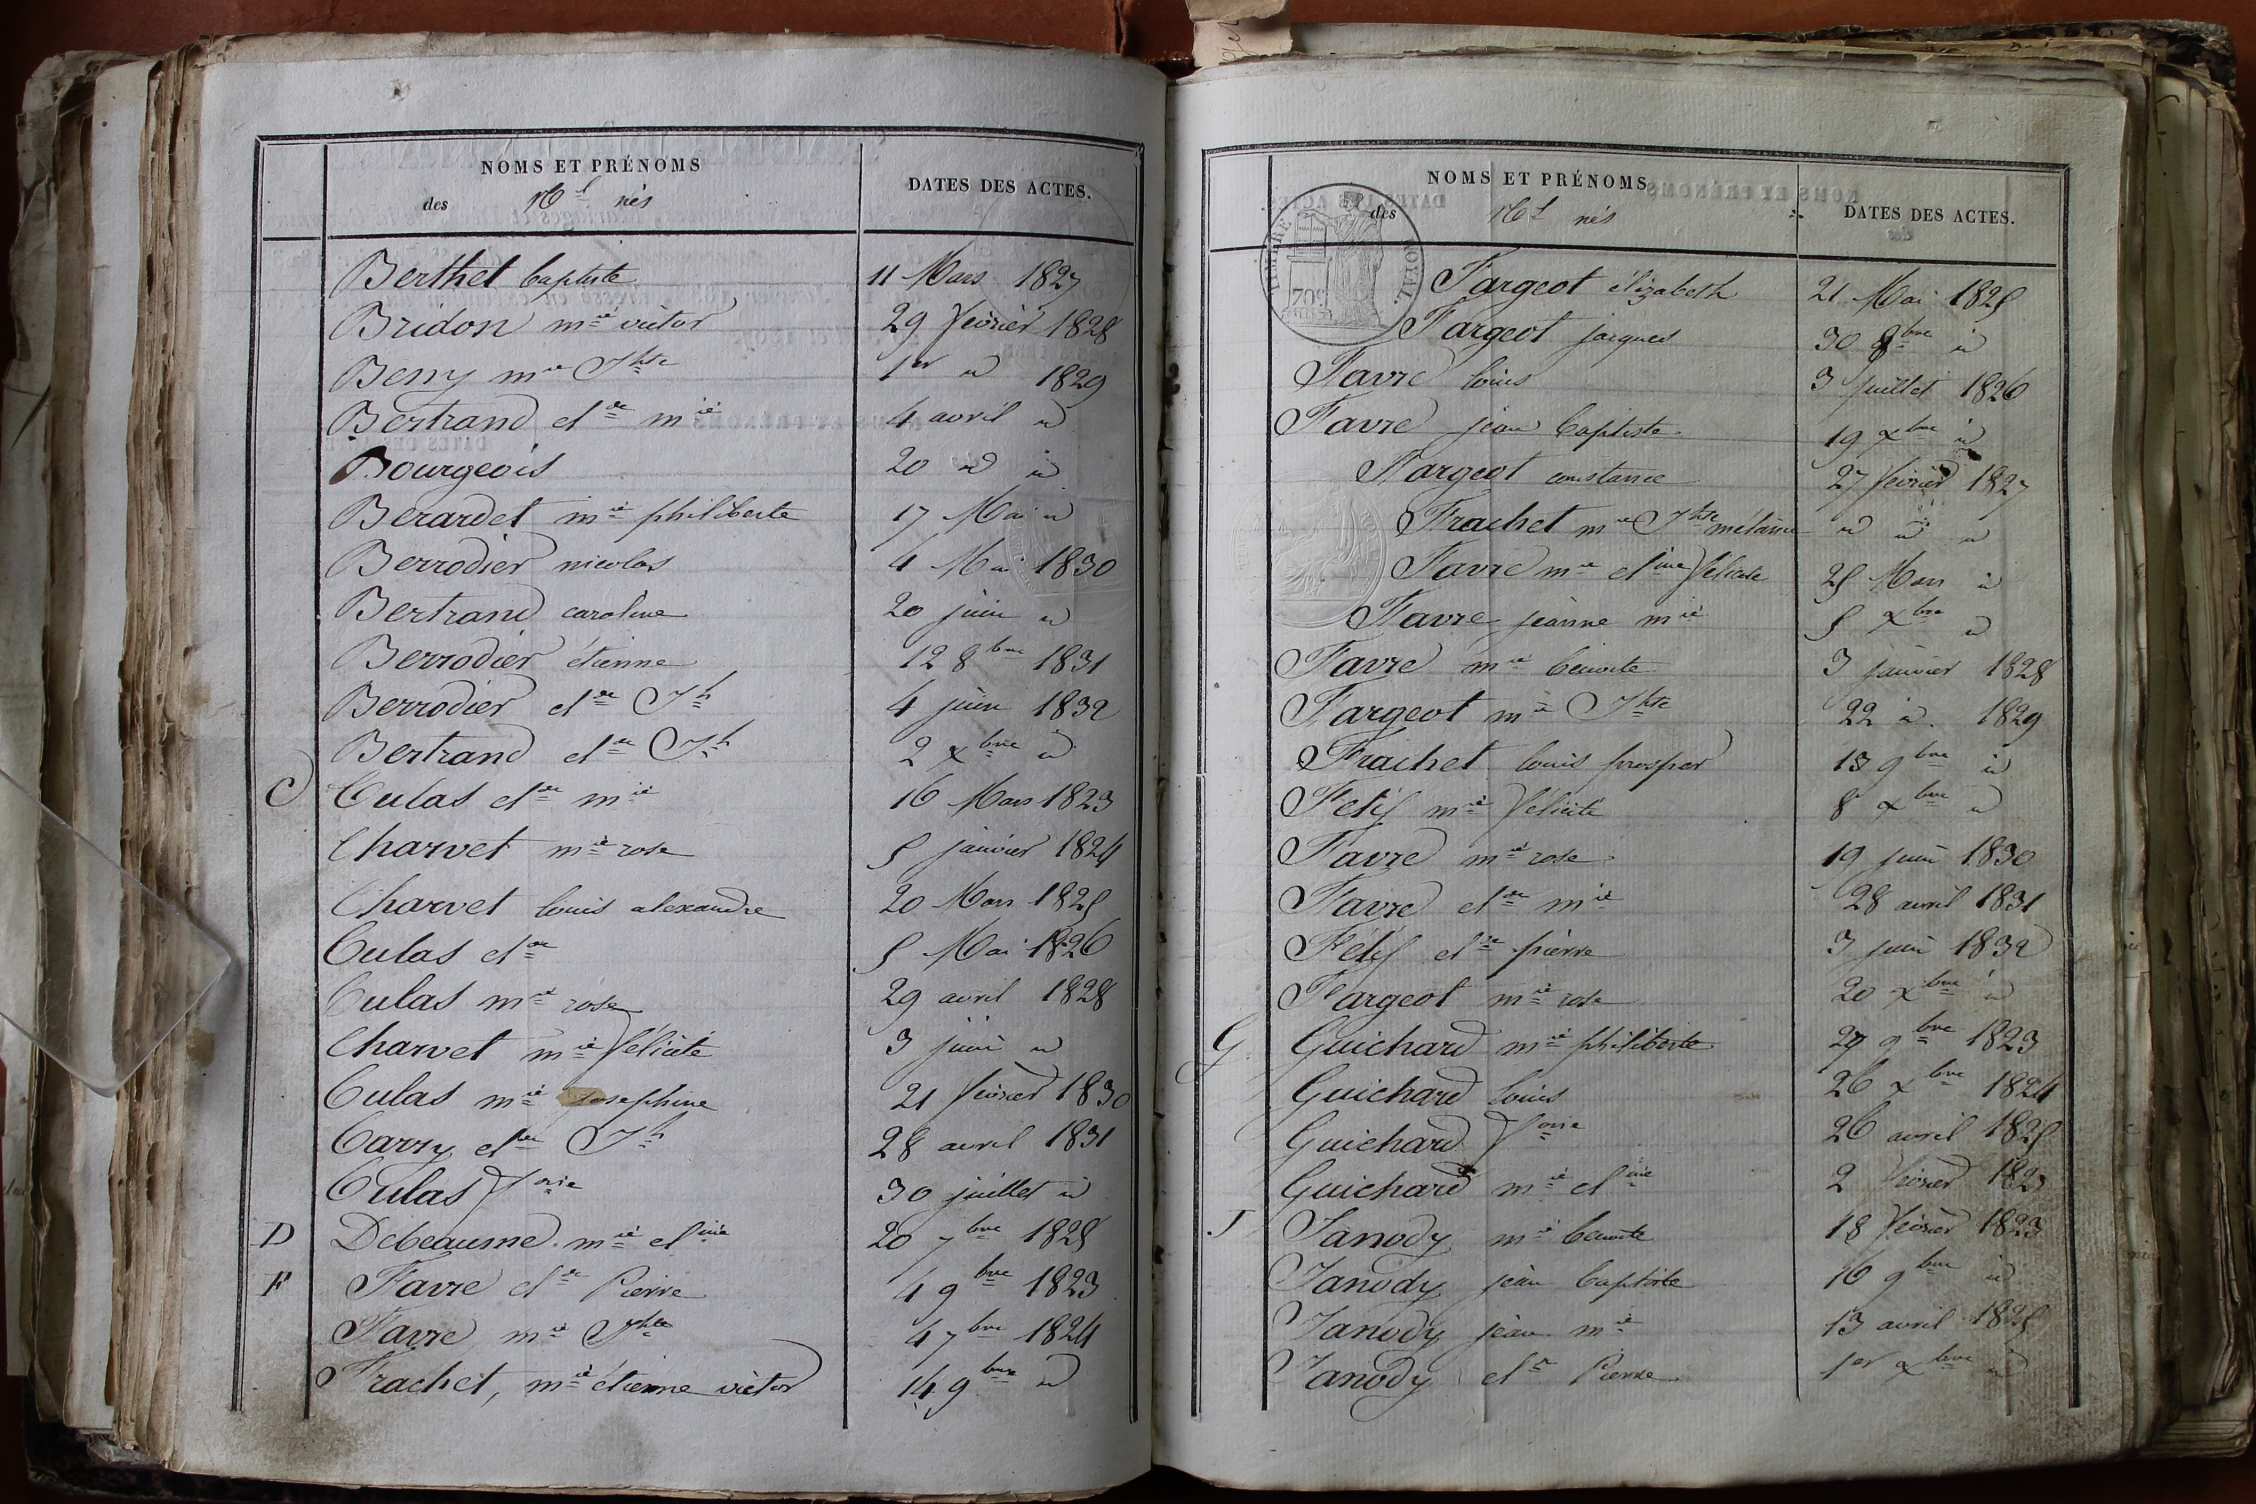 NOMS ET PRÉNOMS
des nés
DATES DES ACTES.
Berthet baptiste 11 Mars 1827
Bridon m^ie victor 29 février 1828
Berry m^ie J^hte 1^er id 1829
Bertrand cl^de m^ie 4 avril id
Bourgeois 20 id id
Berardet m^ie philiberte 17 Mai id
Berrodier nicolas 4 Mai 1830
Bertrand caroline 20 juin id
Berrodier étienne 12 8^bre 1831
Berrodier cl^de J^h 4 juin 1832
Bertrand cl^de J^h 2 x^bre id
C Culas cl^de m^ie 16 Mars 1823
Charvet m^ie rose 5 janvier 1824
Charvet louis alexandre 20 Mars 1825
Culas cl^de 5 Mai 1826
Culas m^ie rose 29 avril 1828
Charvet m^ie félicité 3 juin id
Culas m^ie josephine 21 février 1830
Carry cl^de J^h 28 avril 1831
Culas f^oise 30 juillet id
D Debeaume m^ie cl^ine 20 7^bre 1825
F Favre cl^de Pierre 4 9^bre 1823
Favre m^ie J^hte 4 7^bre 1824
Frachet, m^ie étienne victor 14 9^bre id
NOMS ET PRÉNOMS
des nés
DATES DES ACTES.
TIMBRE ROYAL.
70^c
Fargeot élizabeth 21 Mai 1825
Fargeot jacques 30 8^bre id
Favre louis 3 juillet 1826
Favre jean baptiste 19 x^bre id
Fargeot constance 27 février 1827
Frachet m^ie J^hte mélanie id id id
Favre m^ie cl^ine félicité 25 Mars id
Favre jeanne m^ie 5 x^bre id
Favre m^ie benoite 3 janvier 1828
Fargeot m^ie J^hte 22 id 1829
Frachet louis prosper 13 9^bre id
Fetif m^ie félicité 8 x^bre id
Favre m^ie rose 19 juin 1830
Favre cl^de m^ie 28 avril 1831
Fétif cl^de pierre 3 juin 1832
Fargeot m^ie rose 20 x^bre id
G Guichard m^ie philiberte 9^bre 1823
Guichard louis 26 x^bre 1824
Guichard f^oise 26 avril 1825
Guichard m^ie cl^ine 2 février
J Janody m^ie benoite 18 février 1823
Janody jean baptiste 16 9^bre id
Janody jean m^ie 13 avril 1825
Janody cl^de Pierre 1^er x^bre id